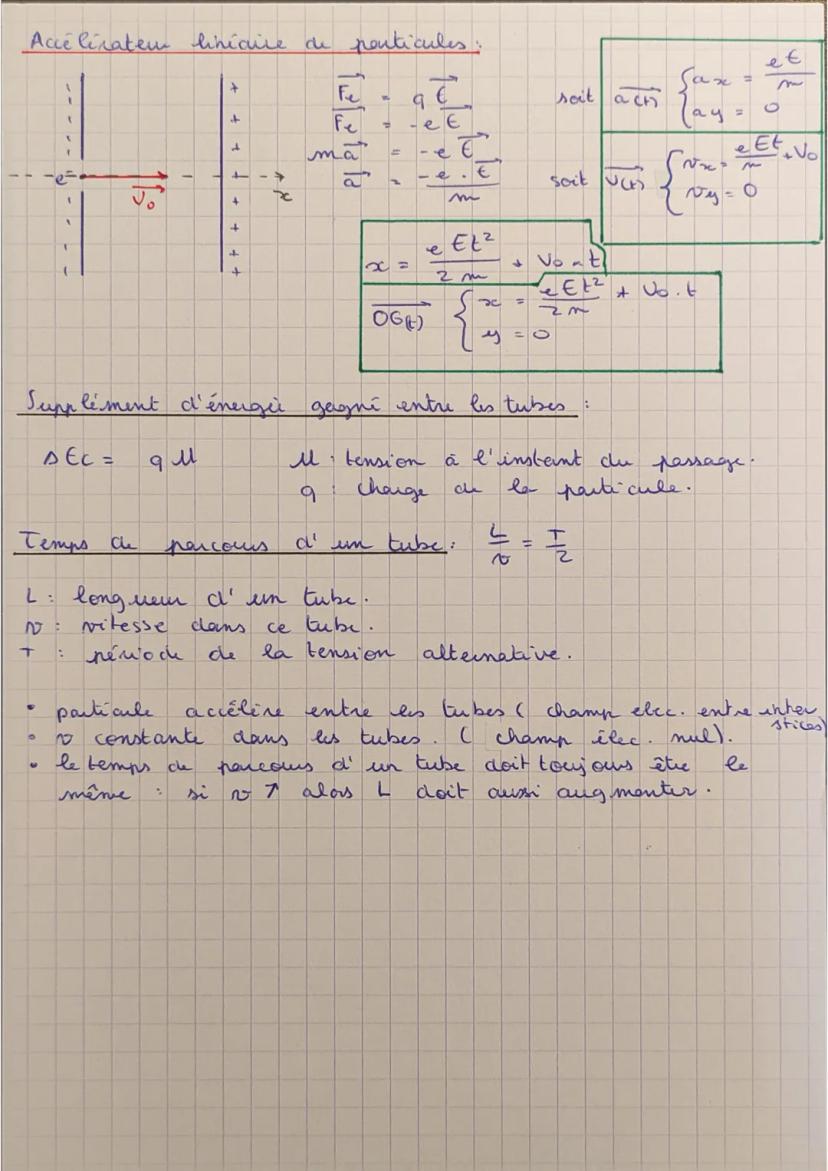 Accélérateur linéaire de particules :
e⁻ V₀ x
Fe = q E
Fe = -e E
m a = -e E
a = -e . E / m
soit a(t) { ax = eE / m
ay = 0
soit v(t) { vx = eEt / m + V₀
vy = 0
x = e Et² / 2m + V₀ . t
OG(t) { x = e Et² / 2m + V₀ . t
y = 0
Supplément d'énergie gagné entre les tubes :
Δ Ec = q U U : tension à l'instant du passage.
q : charge de la particule.
Temps de parcours d'un tube : L / v = T / 2
L : longueur d'un tube.
v : vitesse dans ce tube.
T : période de la tension alternative.
• particule accélère entre les tubes ( champ elec. entre interstices)
• v constante dans les tubes. ( champ élec. nul).
• le temps de parcours d'un tube doit toujours être le
même : si v ↗ alors L doit aussi augmenter.